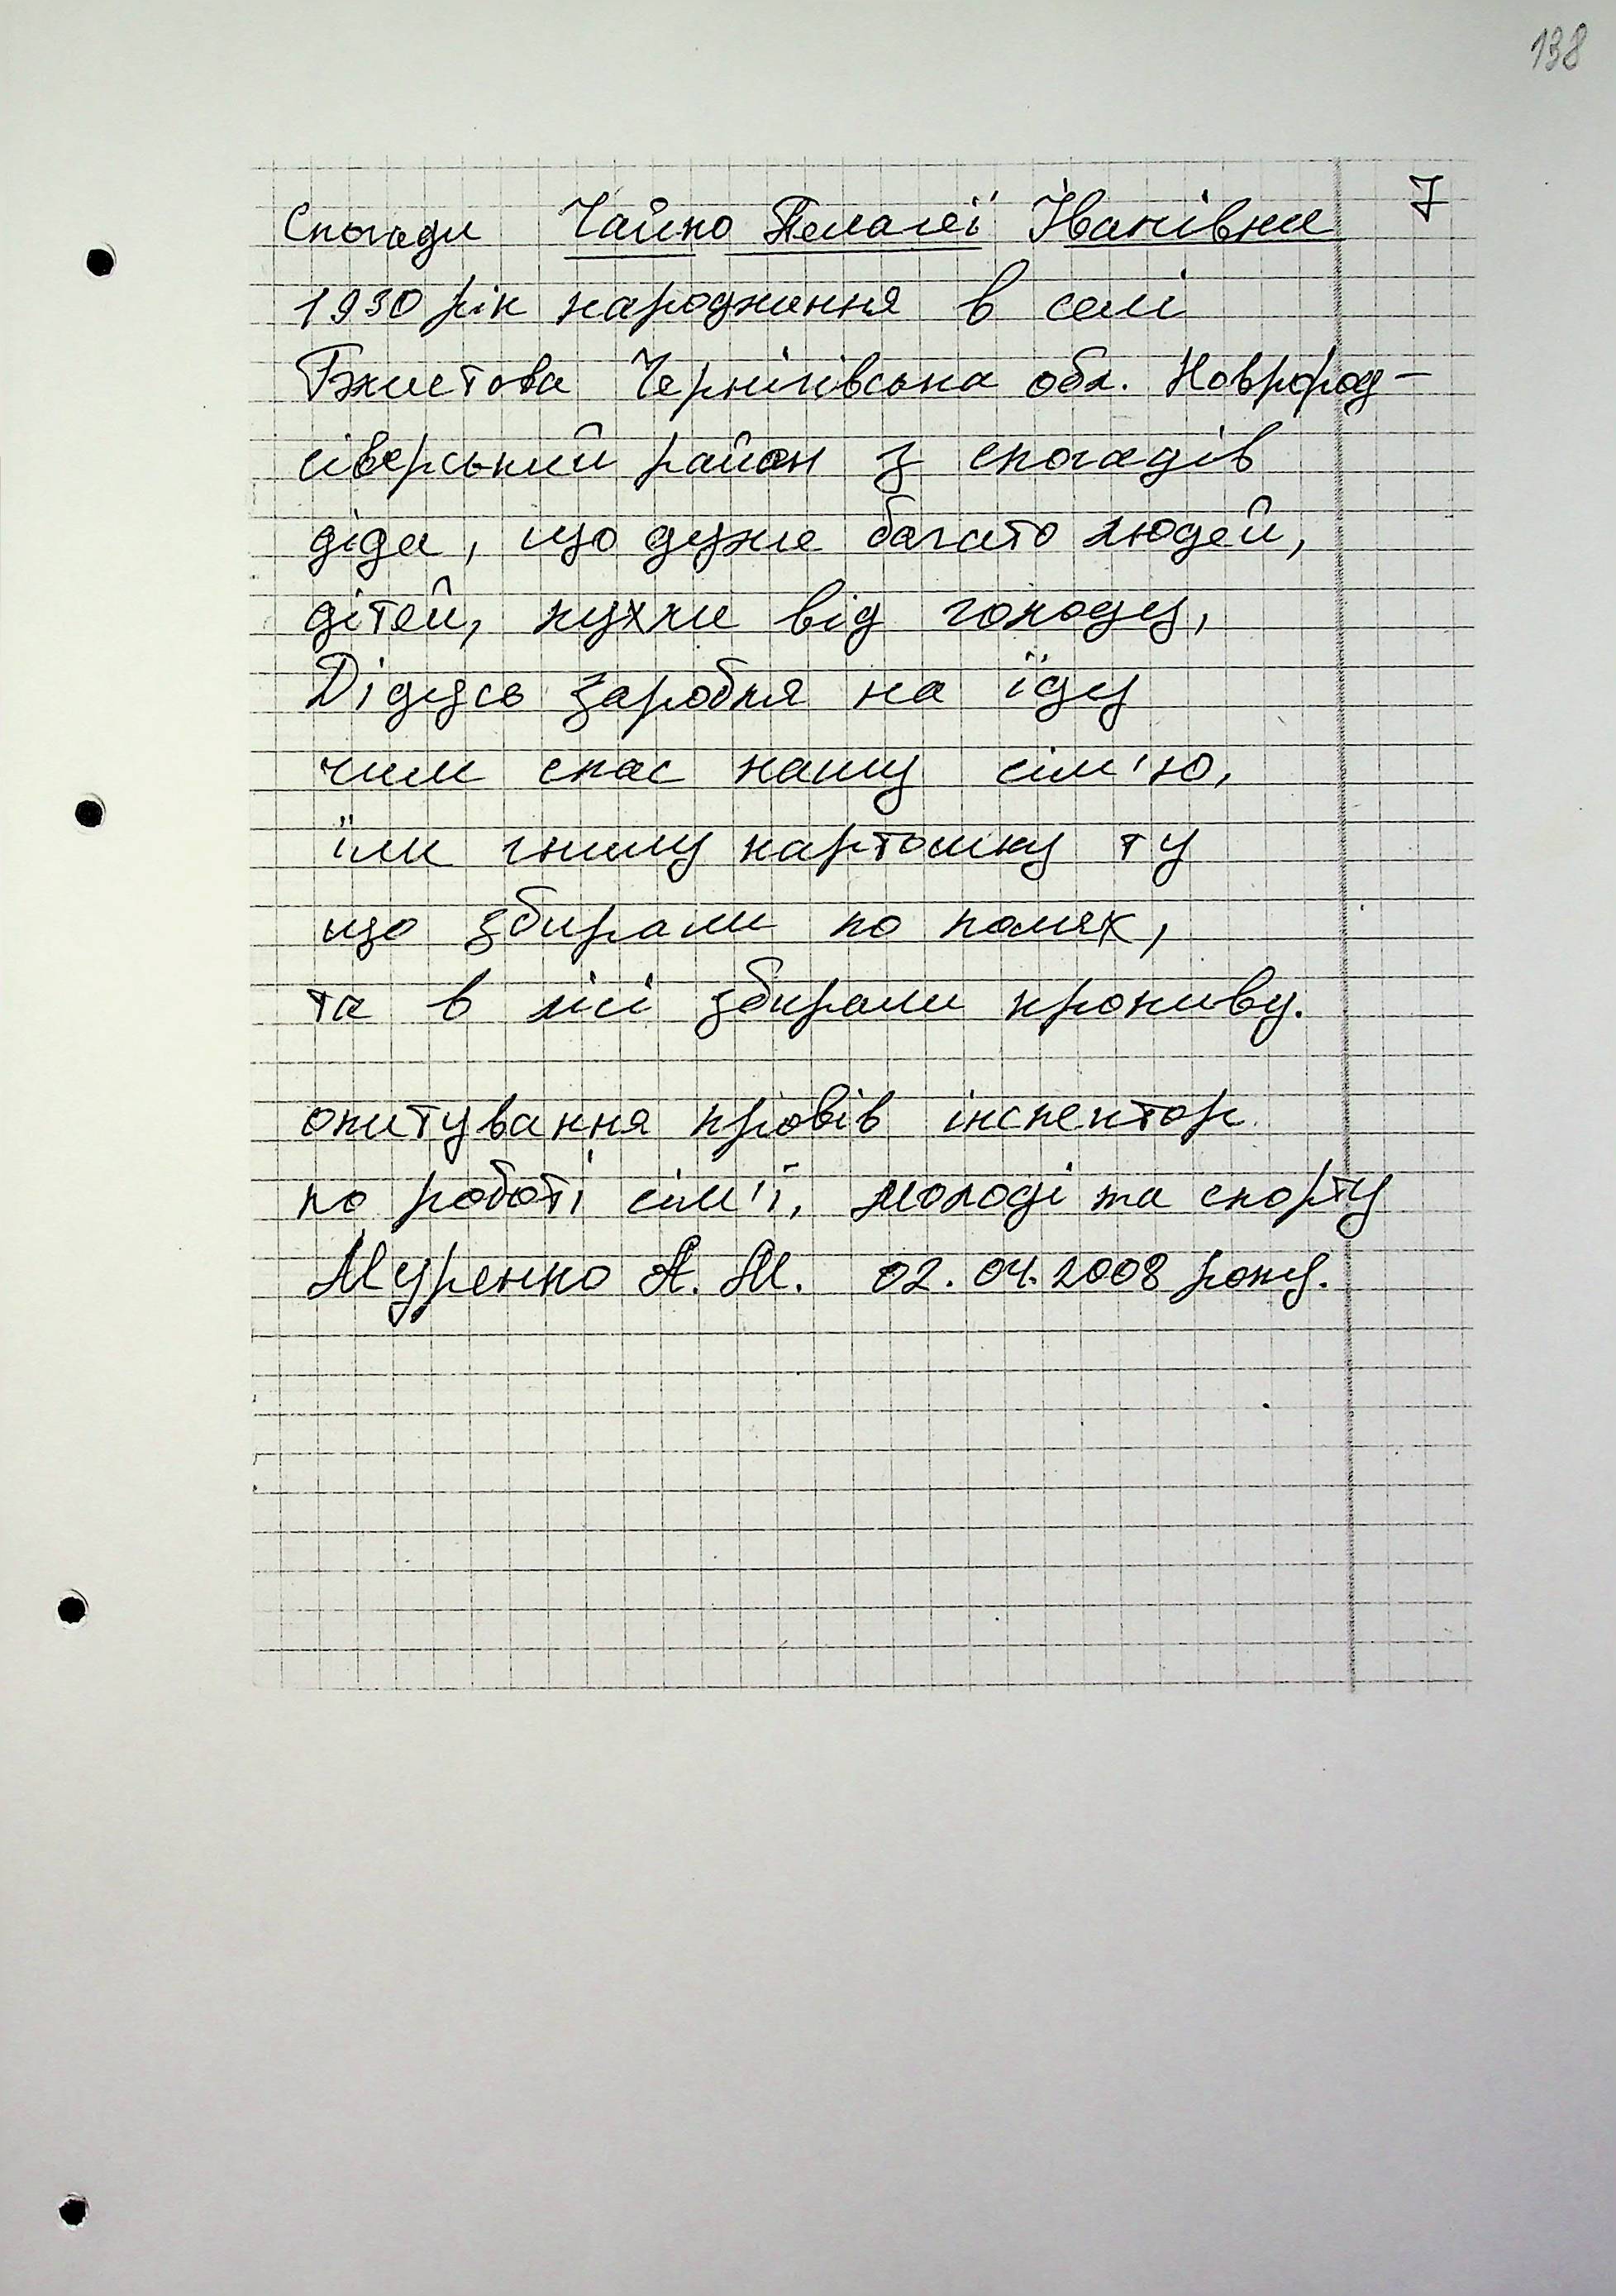 138
7
Спогади Чайко Пелагеї Іванівни
1930 рік народження в селі
Чернігівська обл. Новгород-
сіверський район з спогадів
діда, що дуже багато людей,
дітей, пухли від голоду,
Дідусь заробля на їду
чим спас нашу сім'ю,
їли гнилу картошку ту
що збирали по полях,
та в лісі збирали кропиву.
опитування провів інспектор
по роботі сім'ї, молоді та спорту
Муренко А. М. 02.04.2008 року.